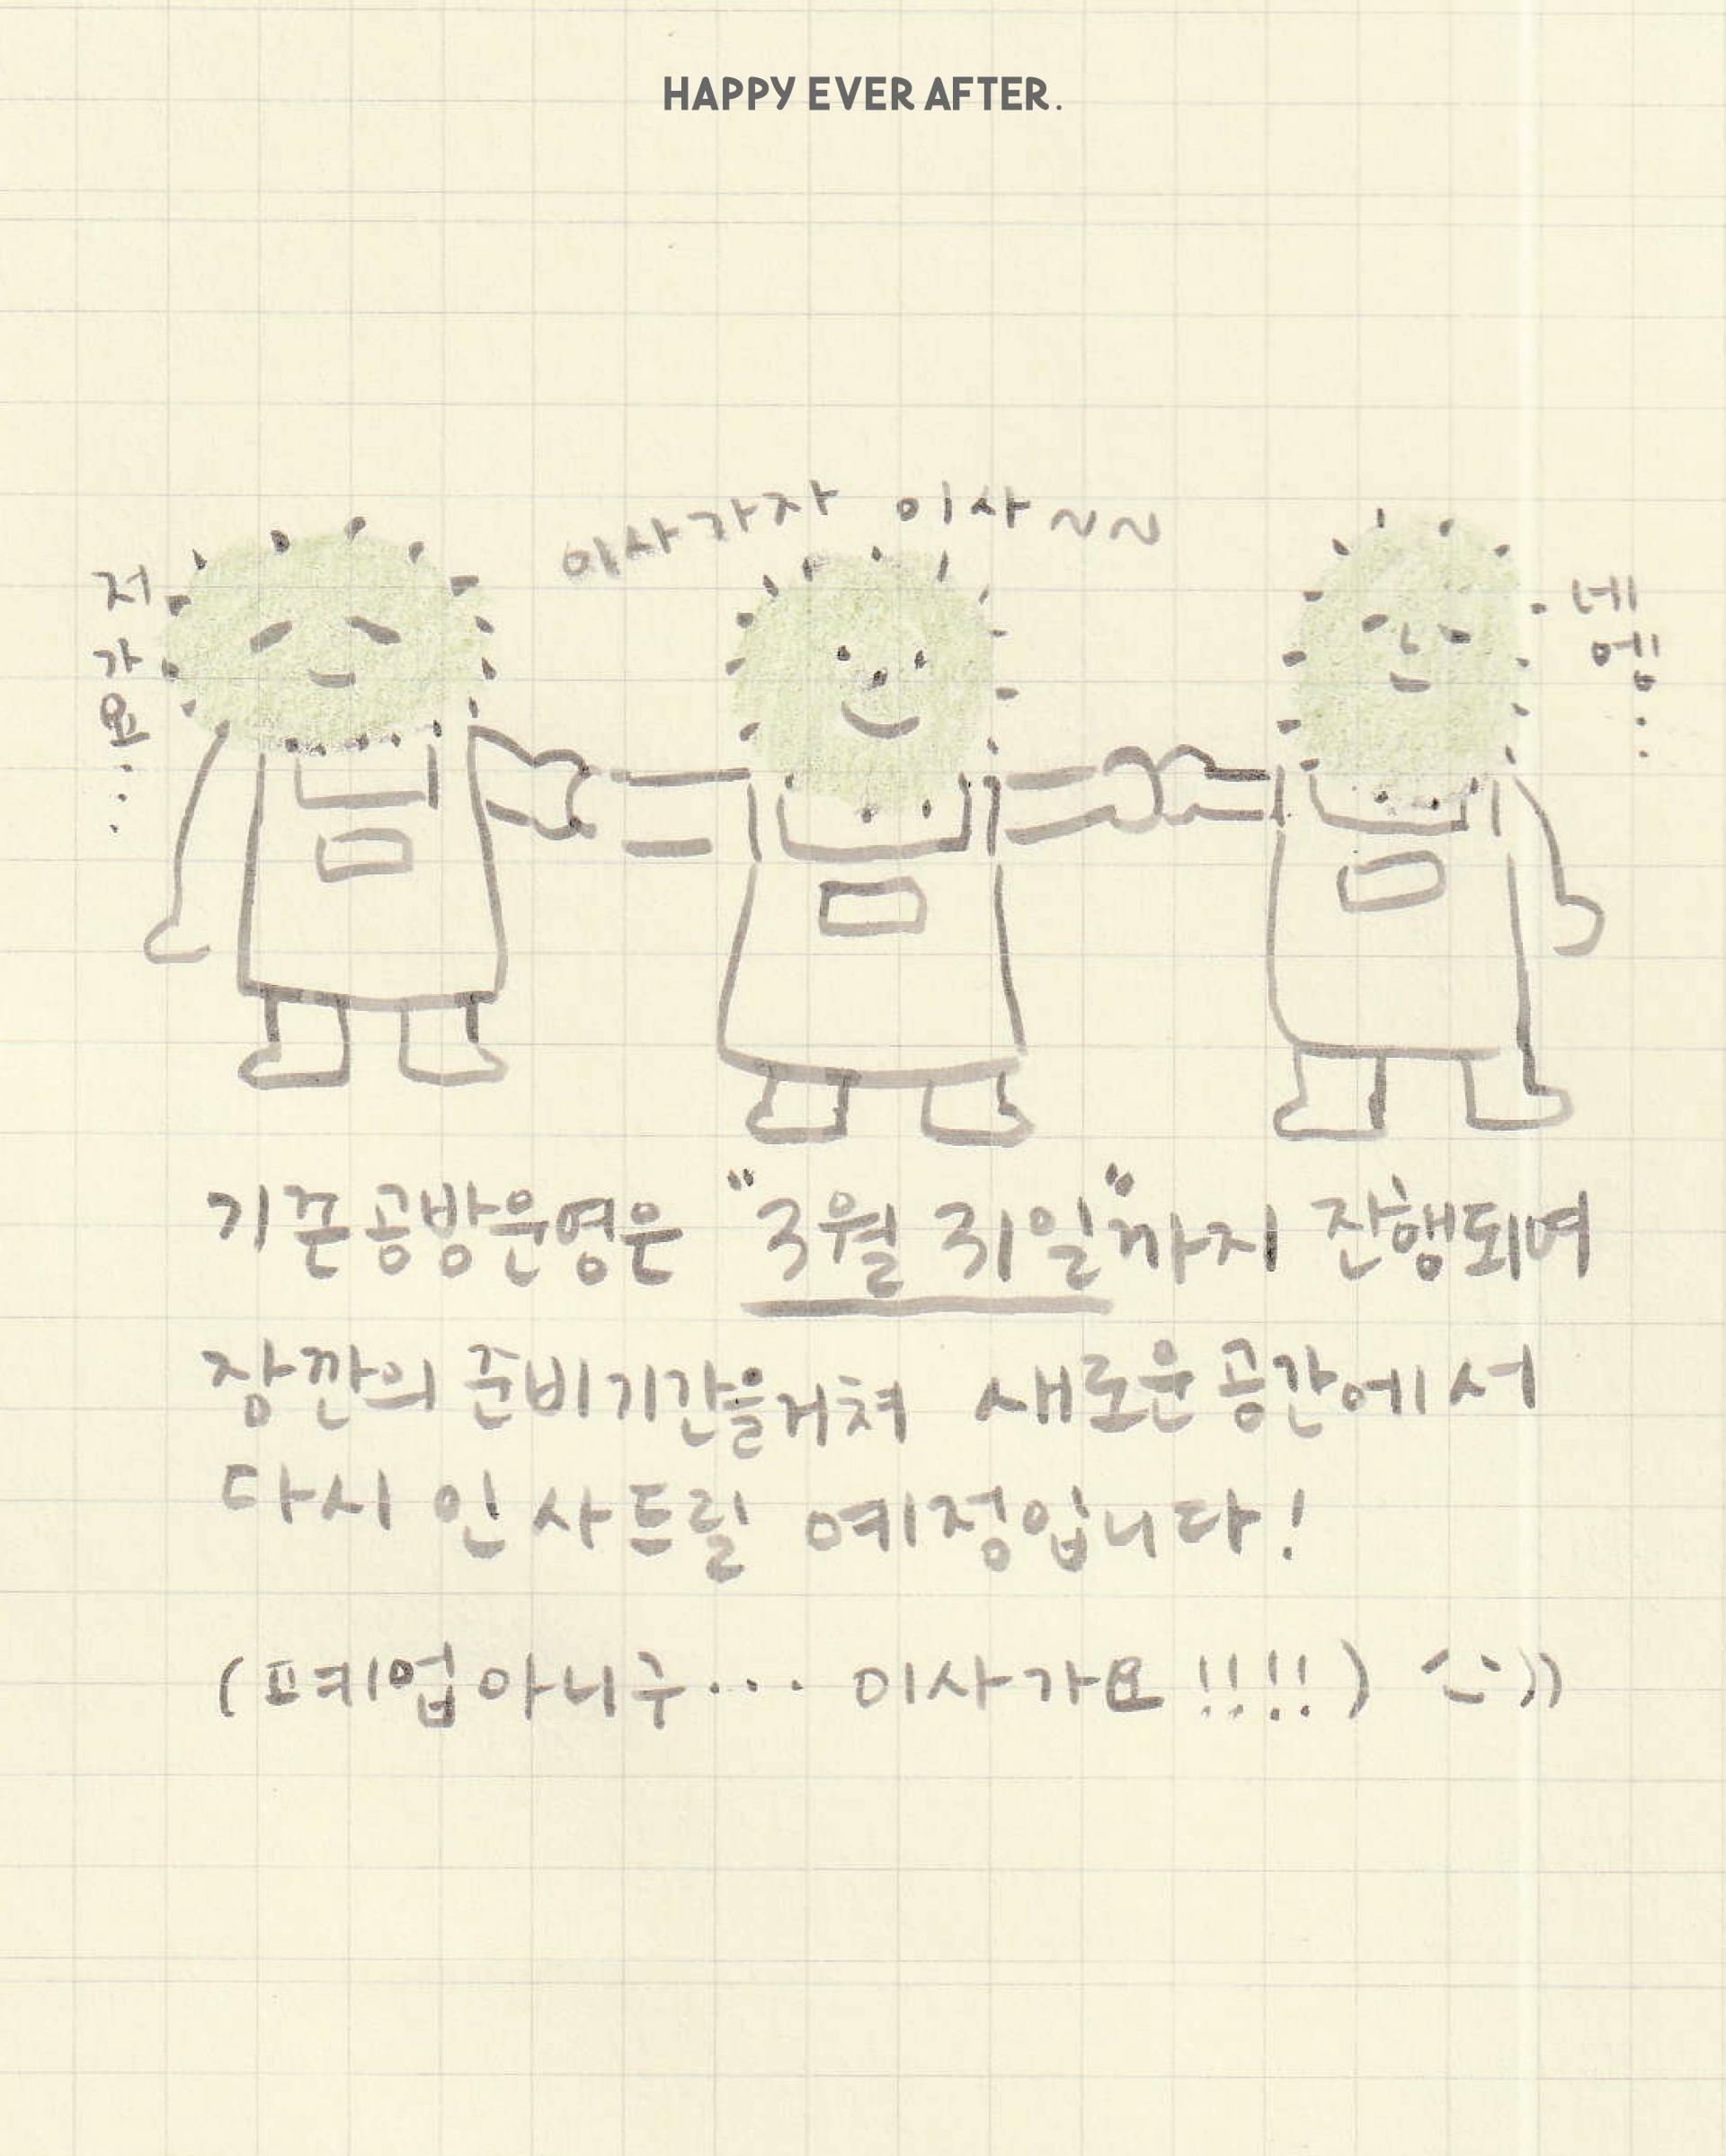 HAPPY EVER AFTER.
이사가자 이사~~
저가요...
네엡..
기존공방운영은 "3월 31일"까지 진행되며
잠깐의 준비기간을거쳐 새로운공간에서
다시 인사드릴 예정입니다!
(폐업아니구... 이사가요!!!!) :))